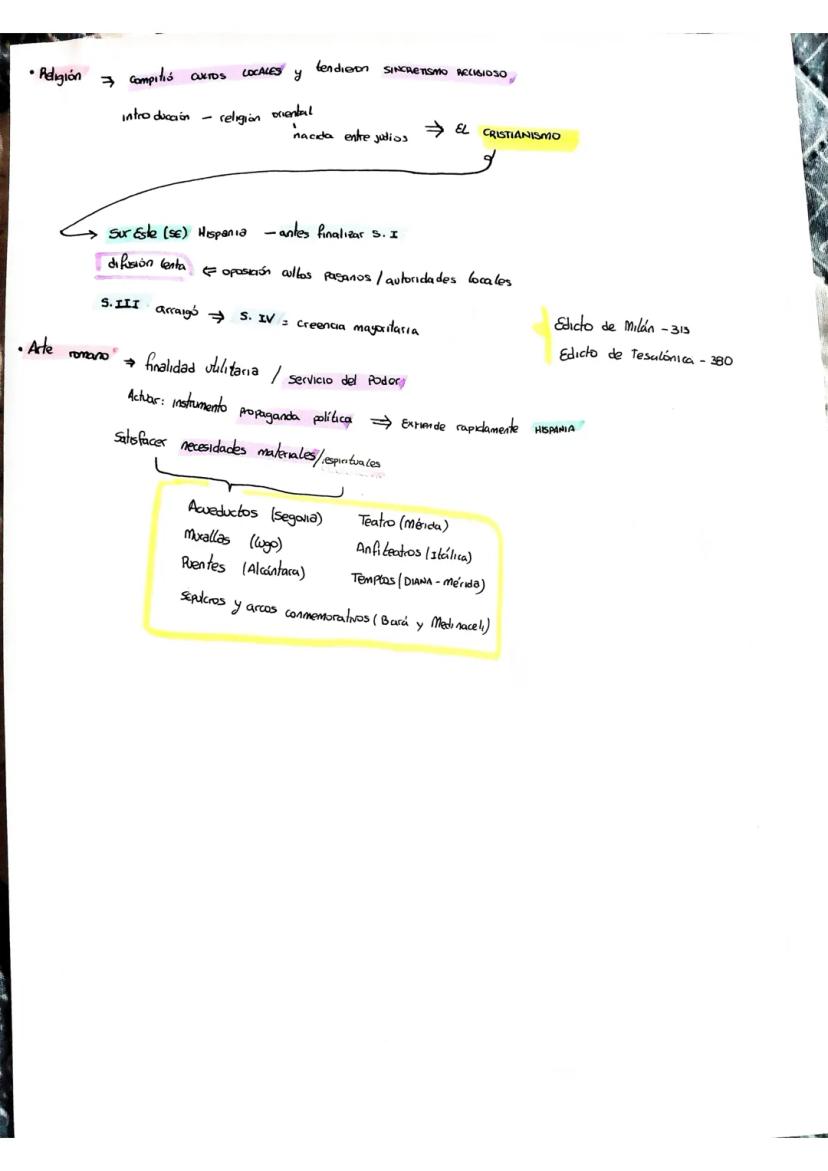 • Religión ⇒ compitió cultos LOCALES y tendieron SINCRETISMO RELIGIOSO
introducción – religión oriental
nacida entre judíos ⇒ EL CRISTIANISMO
Sur Este (SE) Hispania – antes finalizar S. I
difusión lenta ⇐ oposición cultos paganos / autoridades locales
S. III arraigó ⇒ S. IV = creencia mayoritaria
Edicto de Milán – 313
Edicto de Tesalónica – 380
• Arte romano → finalidad utilitaria / servicio del Poder
Actuar: instrumento propaganda política ⇒ Extiende rapidamente HISPANIA
Satisfacer necesidades materiales / espirituales
Acueductos (Segovia) Teatro (Mérida)
Murallas (Lugo) Anfiteatros (Itálica)
Puentes (Alcántara) Templos (DIANA – Mérida)
Sepulcros y arcos conmemorativos (Bará y Medinaceli)